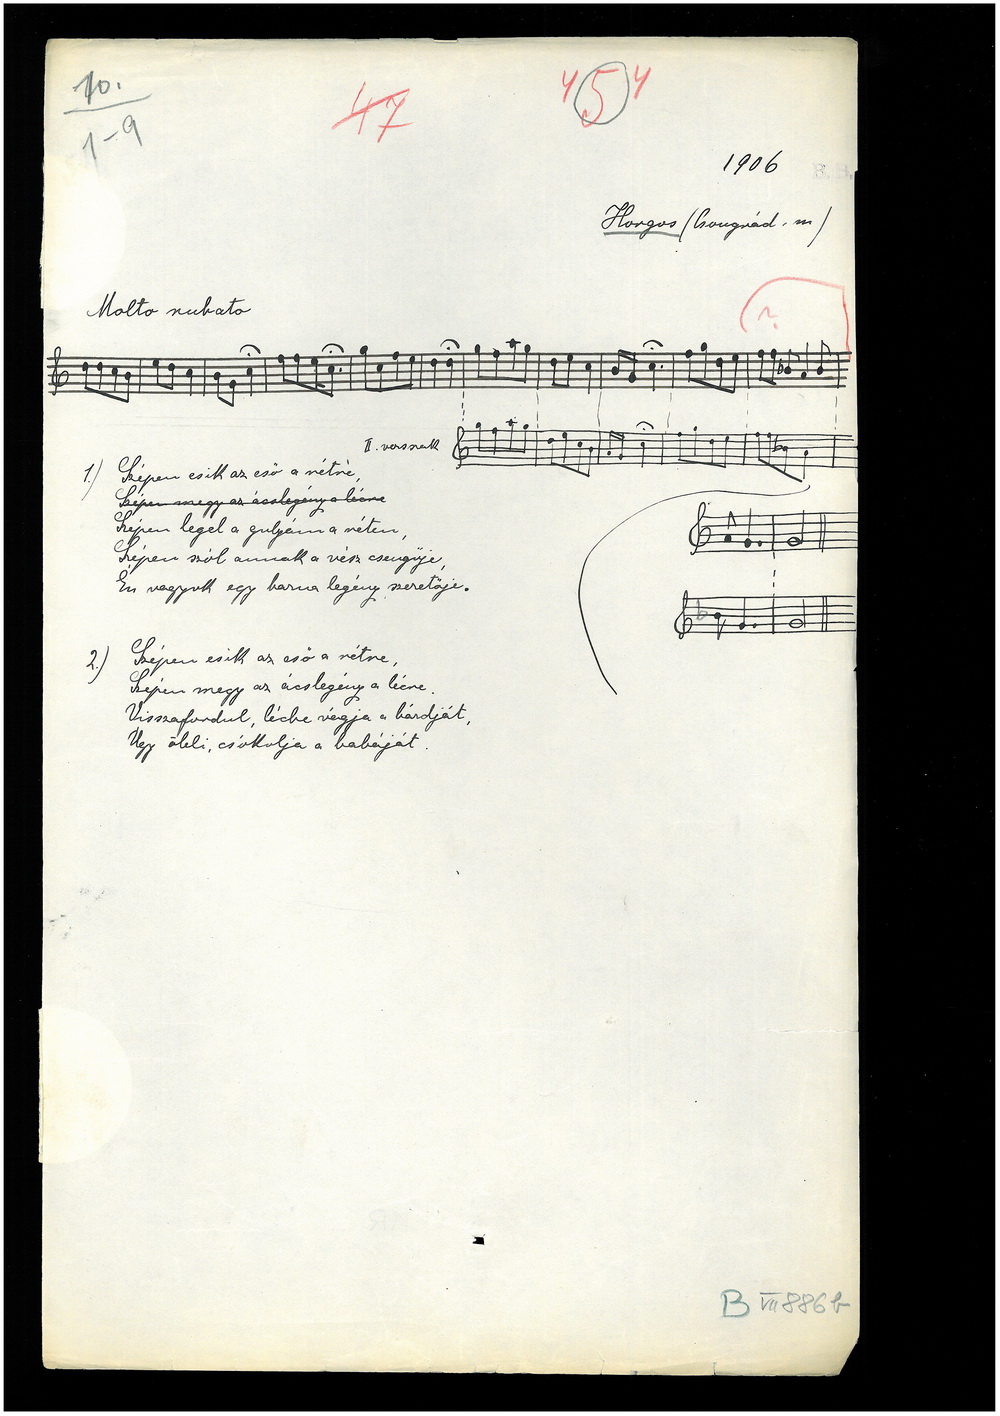 10.
1-9
47
4 5 4
1906
Horgos (Csongrád. m)
Molto rubato
?
II. versnek
1.) Szépen esik az eső a rétre,
Szépen megy az ácslegény a lécre
Szépen legel a gulyám a réten,
Szépen szól annak a vész csengője,
Én vagyok egy barna legény szeretője.
2.) Szépen esik az eső a rétre,
Szépen megy az ácslegény a lécre.
Visszafordul, lécbe vágja a bárdját,
Úgy öleli, csókolja a babáját.
B VII 886b